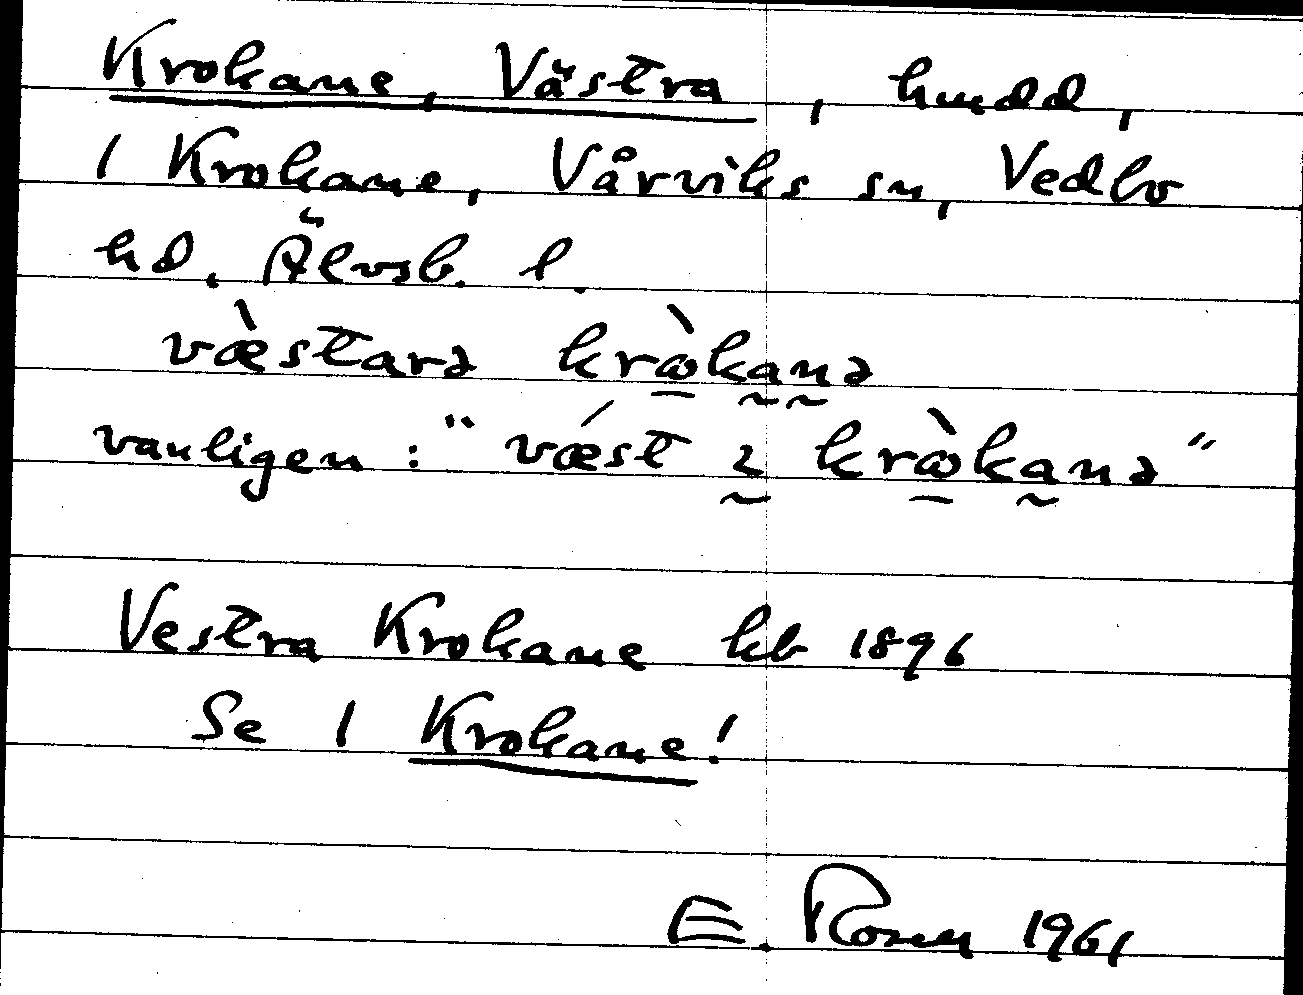 Krokane, Västra, hmdd,
1 Krokane, Vårviks sn, Vedbo
hd. Älvsb. l.
væ̀starə krὼkanə
vanligen: "vǽst ı krὼkanə"
Vestra Krokane kb 1896
Se 1 Krokane!
E. Rosen 1961